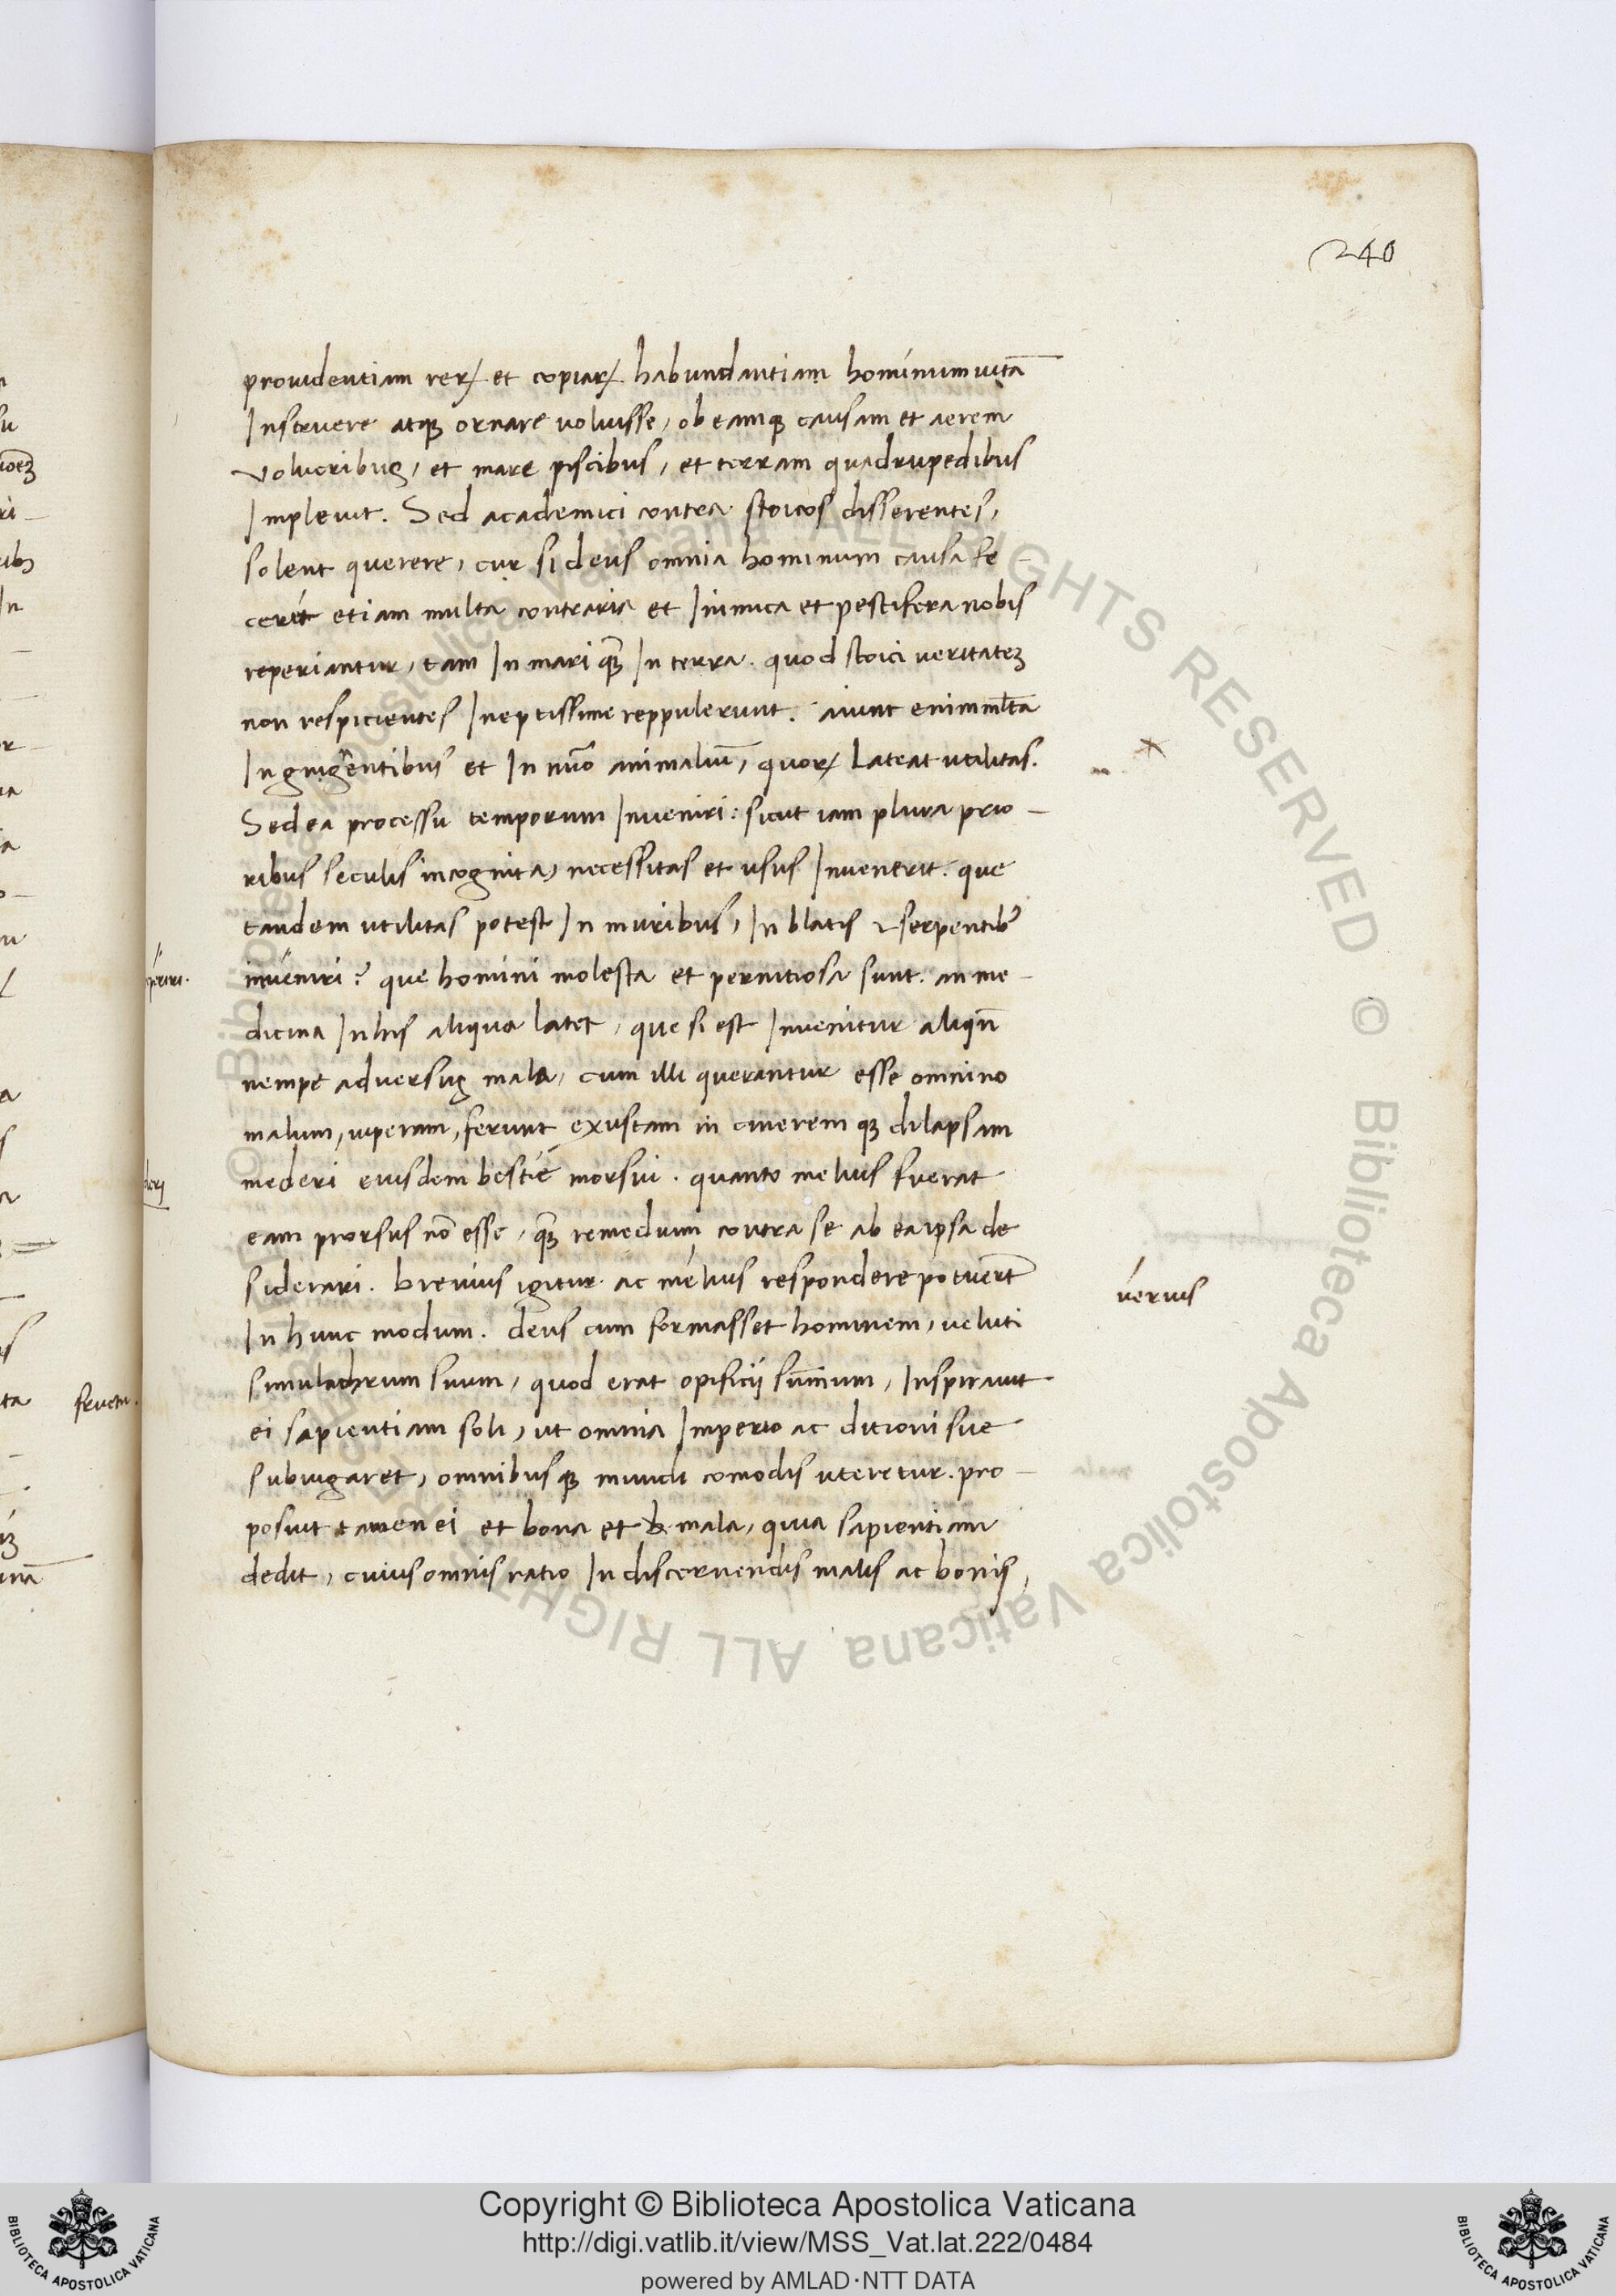 240
prouidentiam reꝝ et copiaꝝ habundantiam hominum uitā
Instruere atqꝫ ornare uoluisse, ob eamqꝫ causam et aerem
volucribus, et mare piscibus, et terram quadrupedibus
Impleuit. Sed academici contra stoicos disserentes,
solent querere, cur si deus omnia hominum causa fe-
cerit etiam multa contraria et Inimica et pestifera nobis
reperiantur, tam In mari qꝫ̄ In terra. quod stoici ueritateꝫ
non respicientes Ineptissime reppulerunt. Aiunt enim mlta
In gignentibus et In nūo animaliū, quoꝝ Lateat utilitas.
Sed ea processu temporum Inueniri: sicut iam plura prio-
ribus seculis incognita, necessitas et usus Inuenerit. que
tandem utilitas potest In muribus, In blatis ⁊ serpentibꝰ
inueniri? que homini molesta et pernitiosa sunt. an me-
dicina In his aliqua latet, que si est Inuenitur aliqn̄
nempe aduersus mala, cum illi querantur esse omnino
malum, uiperam, ferunt exustam in cineremqꝫ dilapsam
mederi eiusdem bestie morsui. quanto melius fuerat
eam prorsus nō esse, qꝫ̄ remedium contra se ab ea ipsa de
siderari. breuius igitur ac melius respondere potuert̄
In hunc modum. deus cum formasset hominem, ueluti
simulachrum suum, quod erat opificii sūmum, Inspirauit
ei sapientiam soli, ut omnia Imperio ac ditioni sue
subiugaret, omnibusqꝫ mundi comodis uteretur. pro-
posuit tamen ei et bona et mala, quia sapientiam
dedit, cuius omnis ratio In discernendis malis ac bonis,
uerius
fructu.
© Biblioteca Apostolica Vaticana ALL RIGHTS RESERVED
Copyright © Biblioteca Apostolica Vaticana
http://digi.vatlib.it/view/MSS_Vat.lat.222/0484
powered by AMLAD·NTT DATA
BIBLIOTECA APOSTOLICA VATICANA
BIBLIOTECA APOSTOLICA VATICANA